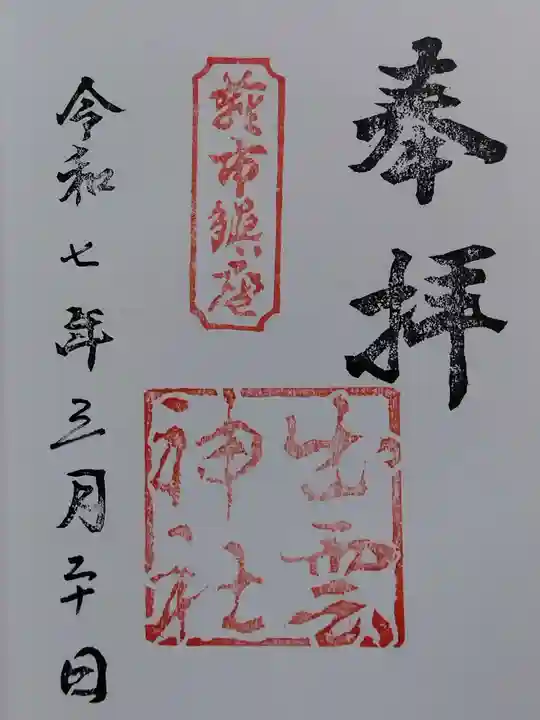 奉拝
市鎮座
出雲
神社
令和七年三月二十日